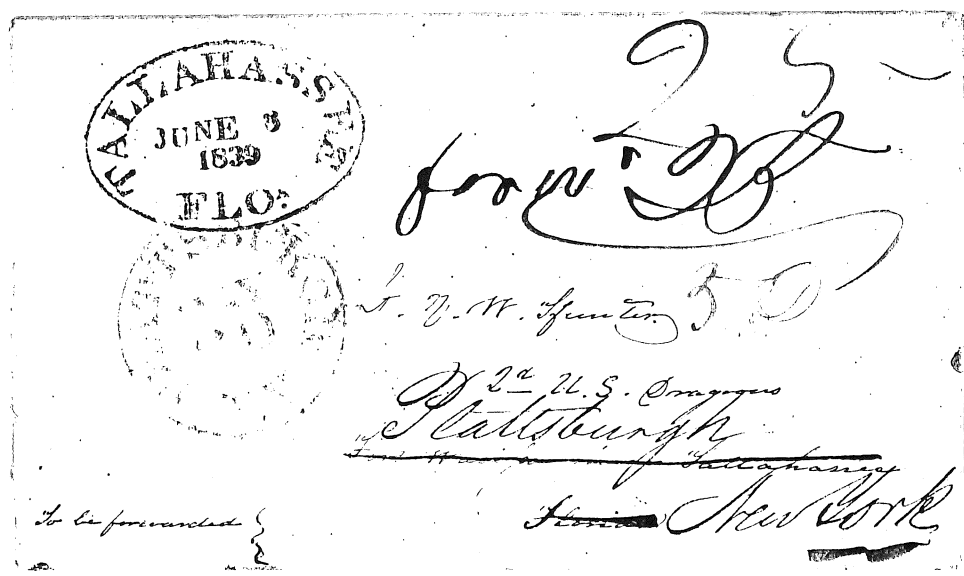 TALLAHASSEE
JUNE 3
1839
FLO.
25
forw^d
50
Lt. N. W. Hunter
2^d U.S. Dragoons
Plattsburgh
Tallahassee
Florida New York
To be forwarded